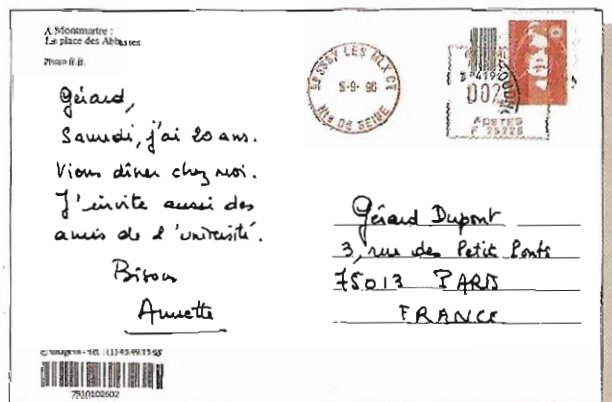 A Montmartre :
La place des Abbesses
Photo R.B.
Gérard,
Samedi, j'ai 20 ans.
Viens dîner chez moi.
J'invite aussi des
amis de l'université.
Bisous
Annette
ISSY LES MLX CT
5-9-90
DE SEINE
002
POSTES
Gérard Dupont
3, rue des Petit Ponts
75013 PARIS
FRANCE
7510102602